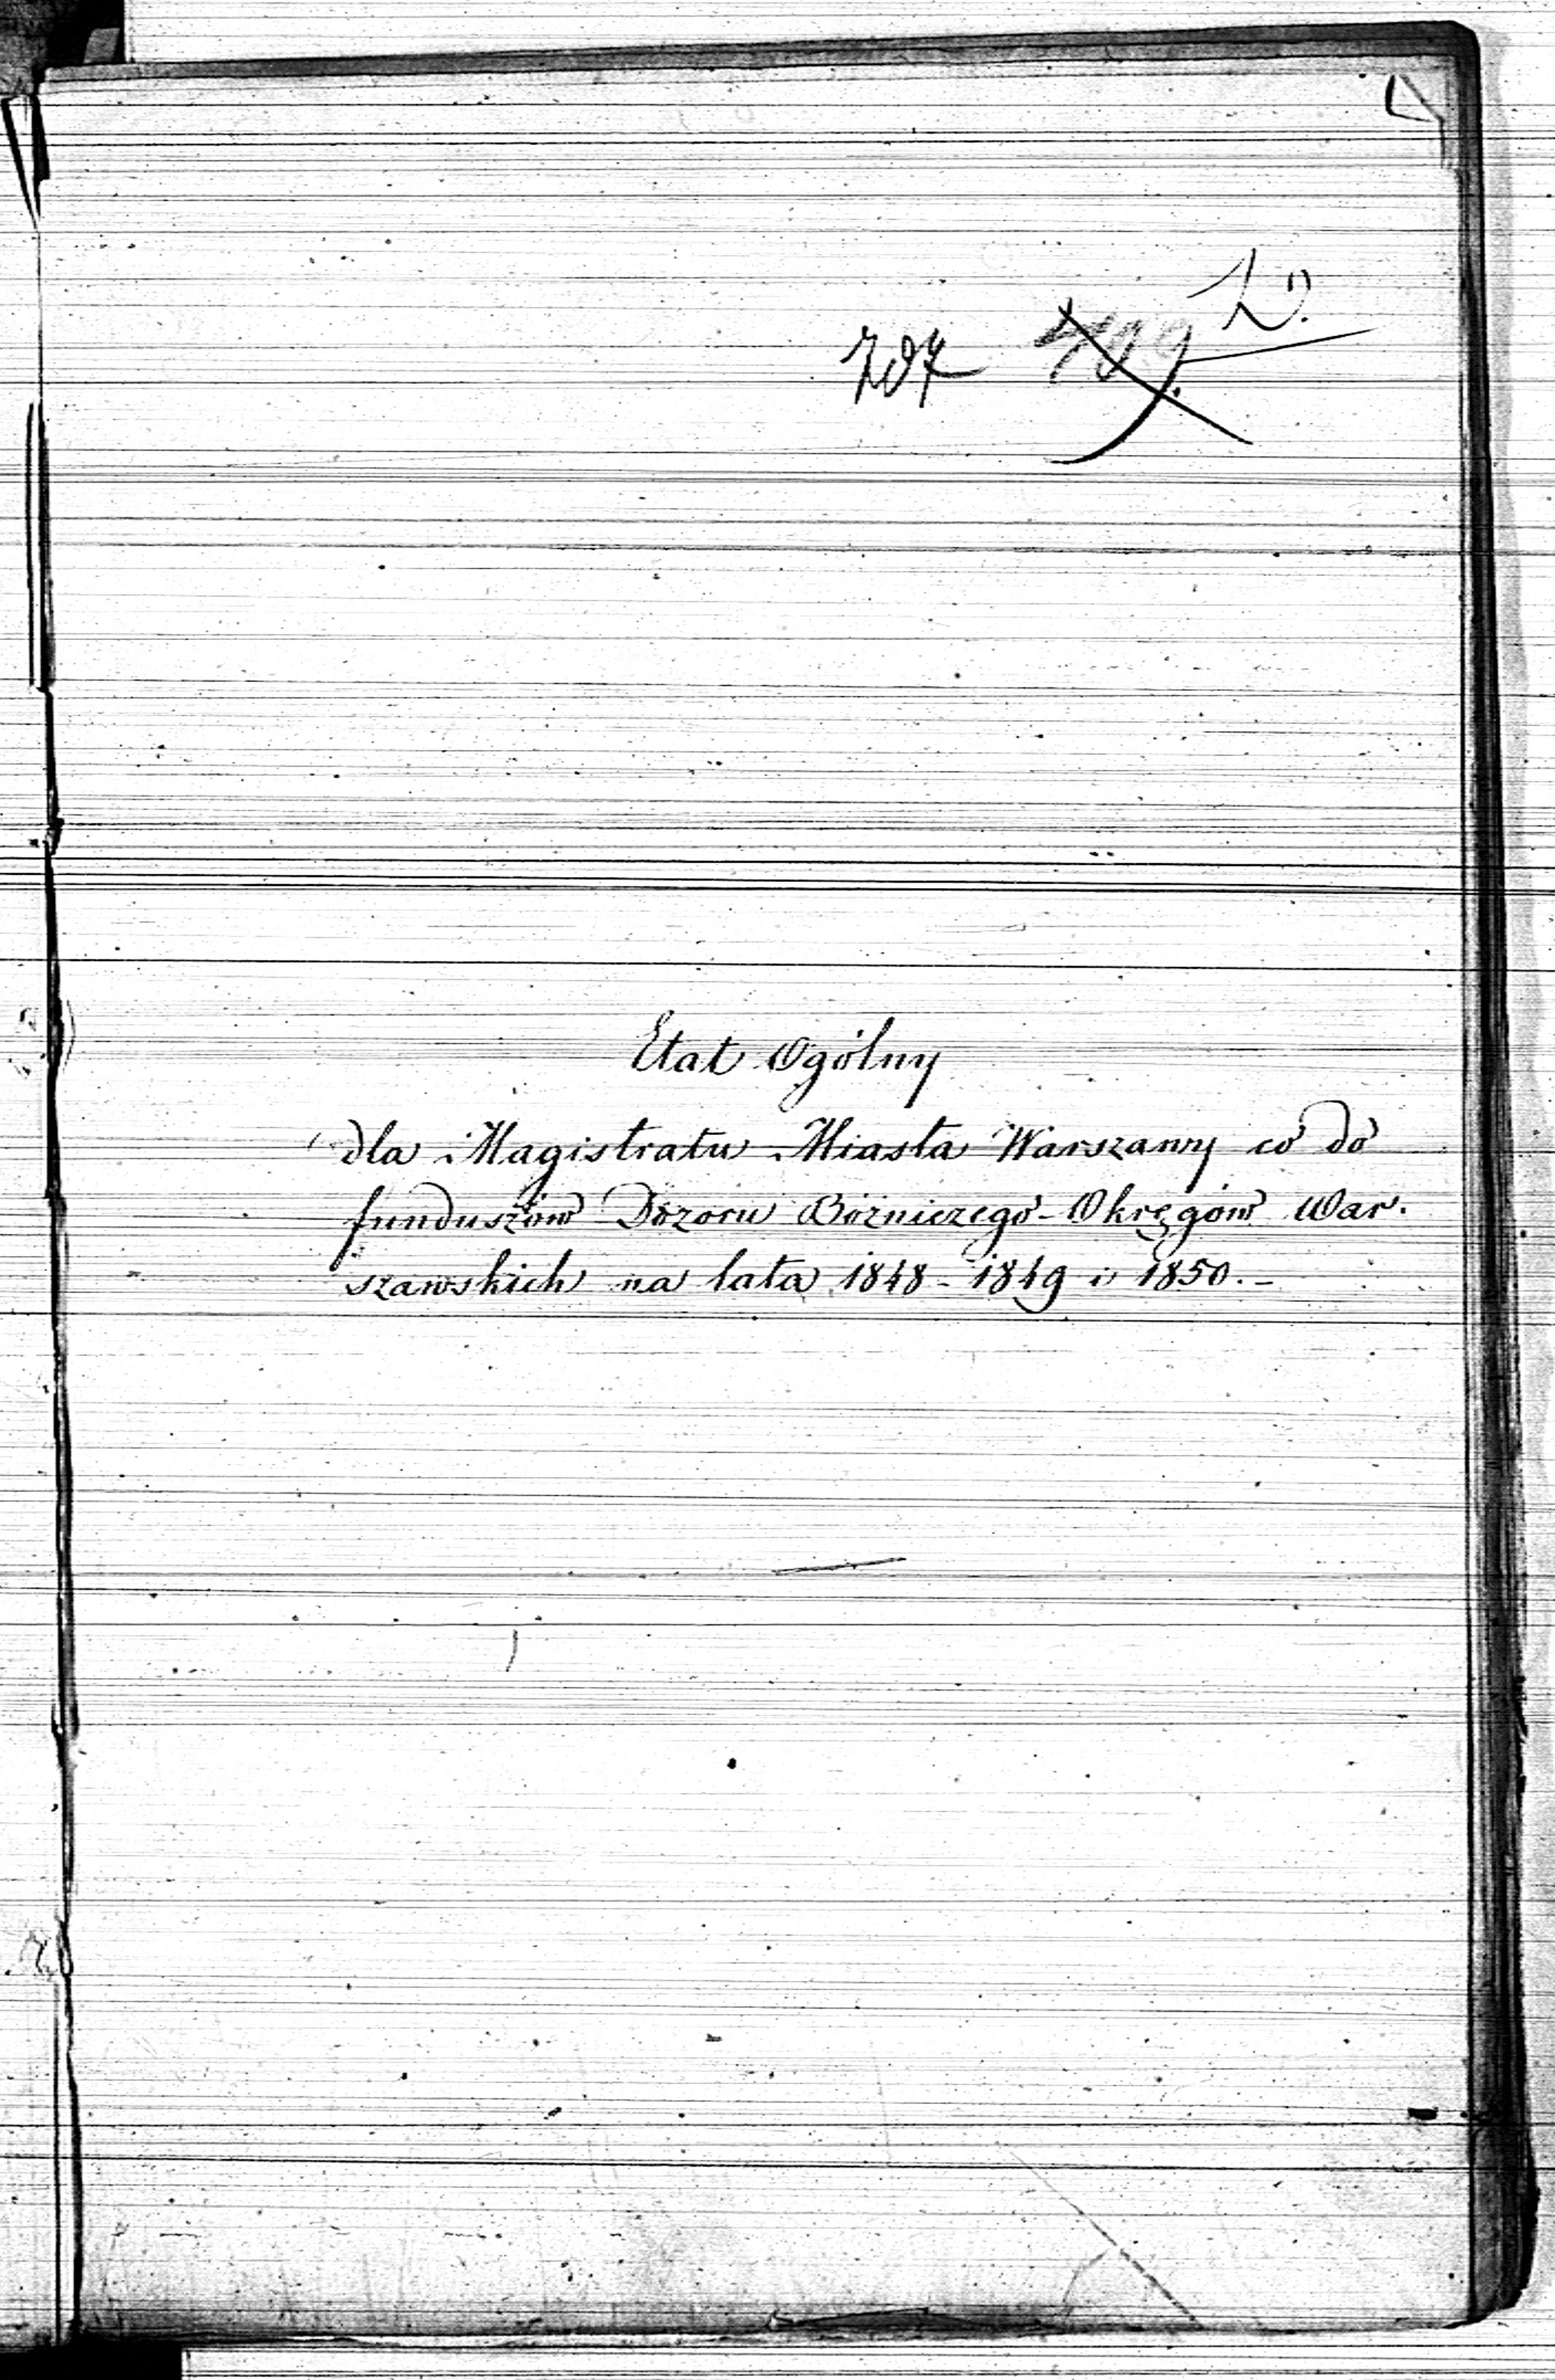 707
Etat Ogólny
dla Magistratu Miasta Warszawy co do
funduszów Dozoru Bóżniczego Okręgów War.
szawskich na lata 1848 - 1849 i 1850. -